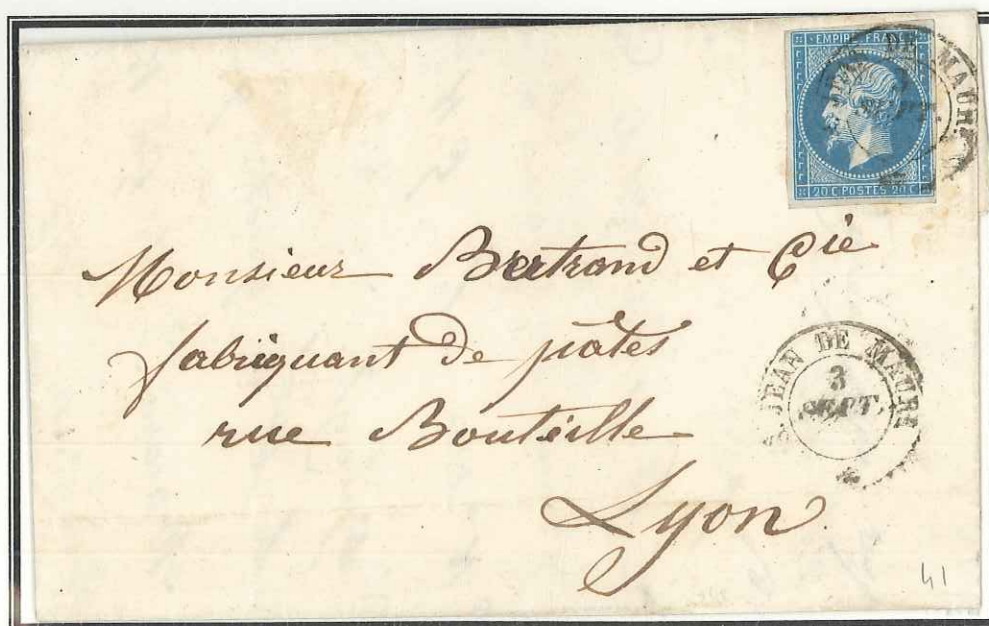 EMPIRE FRANC
DE MAURI
SEPT.
20 C POSTES 20 C
Monsieur Bertrand et Cie
fabriquant de pâtes
rue Bouteille
Lyon
S. JEAN DE MAURI
3
SEPT.
41